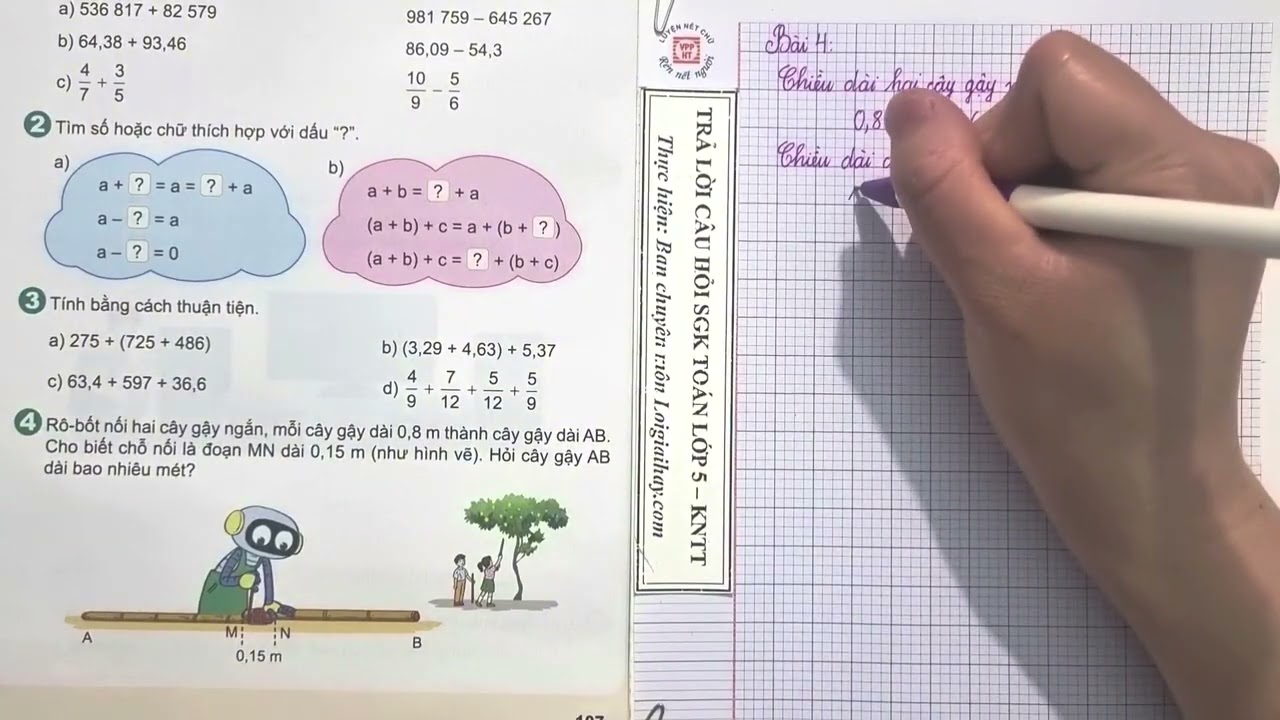 a) 536 817 + 82 579
981 759 – 645 267
b) 64,38 + 93,46
86,09 – 54,3
c) 4/7 + 3/5
10/9 – 5/6
2 Tìm số hoặc chữ thích hợp với dấu “?”.
a)
a + ? = a = ? + a
a – ? = a
a – ? = 0
b)
a + b = ? + a
(a + b) + c = a + (b + ?)
(a + b) + c = ? + (b + c)
3 Tính bằng cách thuận tiện.
a) 275 + (725 + 486)
b) (3,29 + 4,63) + 5,37
c) 63,4 + 597 + 36,6
d) 4/9 + 7/12 + 5/12 + 5/9
4 Rô-bốt nối hai cây gậy ngắn, mỗi cây gậy dài 0,8 m thành cây gậy dài AB.
Cho biết chỗ nối là đoạn MN dài 0,15 m (như hình vẽ). Hỏi cây gậy AB
dài bao nhiêu mét?
A
M
N
B
0,15 m
LUYỆN NÉT CHỮ
VPP
HT
Rèn nết người
TRẢ LỜI CÂU HỎI SGK TOÁN LỚP 5 – KNTT
Thực hiện: Ban chuyên môn Loigiaihay.com
Bài 4:
Chiều dài hai cây gậy
0,8
Chiều dài